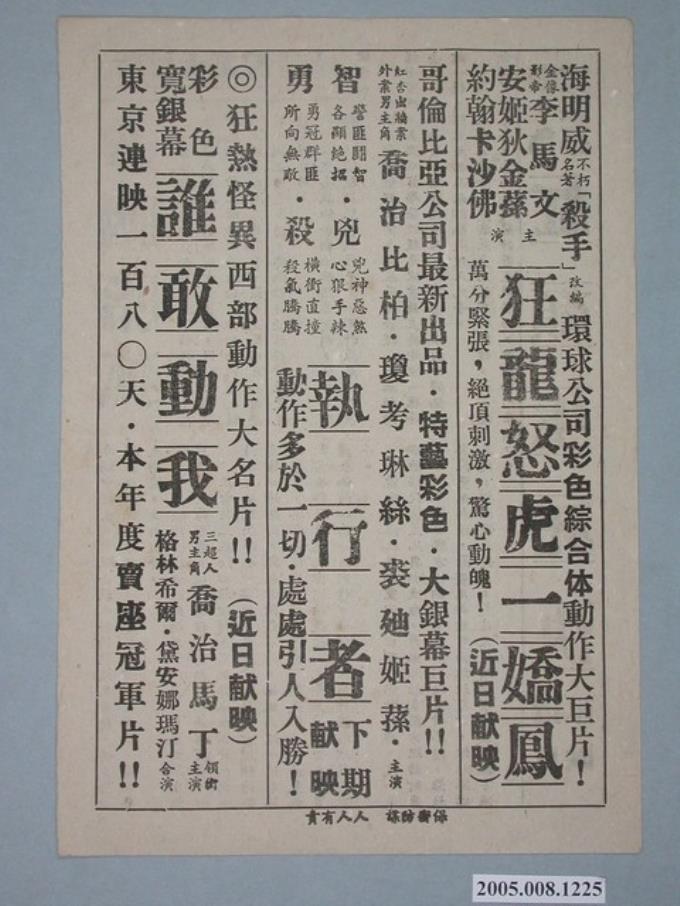 海明威不朽名著「殺手」改編 環球公司彩色綜合体動作大巨片！
金像影帝 李馬文
安姬狄金蓀
約翰卡沙佛
主演
狂龍怒虎一嬌鳳
萬分緊張，絕頂刺激，驚心動魄！（近日献映）
哥倫比亞公司最新出品．特藝彩色．大銀幕巨片!!
紅杏出牆案外案男主角 喬治比柏．瓊考琳絲．裘廸姬蓀．主演
智 警匪鬪智 各顯絕招．兇 兇神惡煞 心狠手辣
勇 勇冠群匪 所向無敵．殺 橫衝直撞 殺氣騰騰
執行者 下期献映
動作多於一切．處處引人入勝！
◎狂熱怪異西部動作大名片!!（近日献映）
彩色
寬銀幕
誰敢動我
三超人男主角 喬治馬丁 領銜主演
格林希爾．黛安娜瑪汀 合演
東京連映一百八〇天．本年度賣座冠軍片!!
保密防諜 人人有責
2005.008.1225